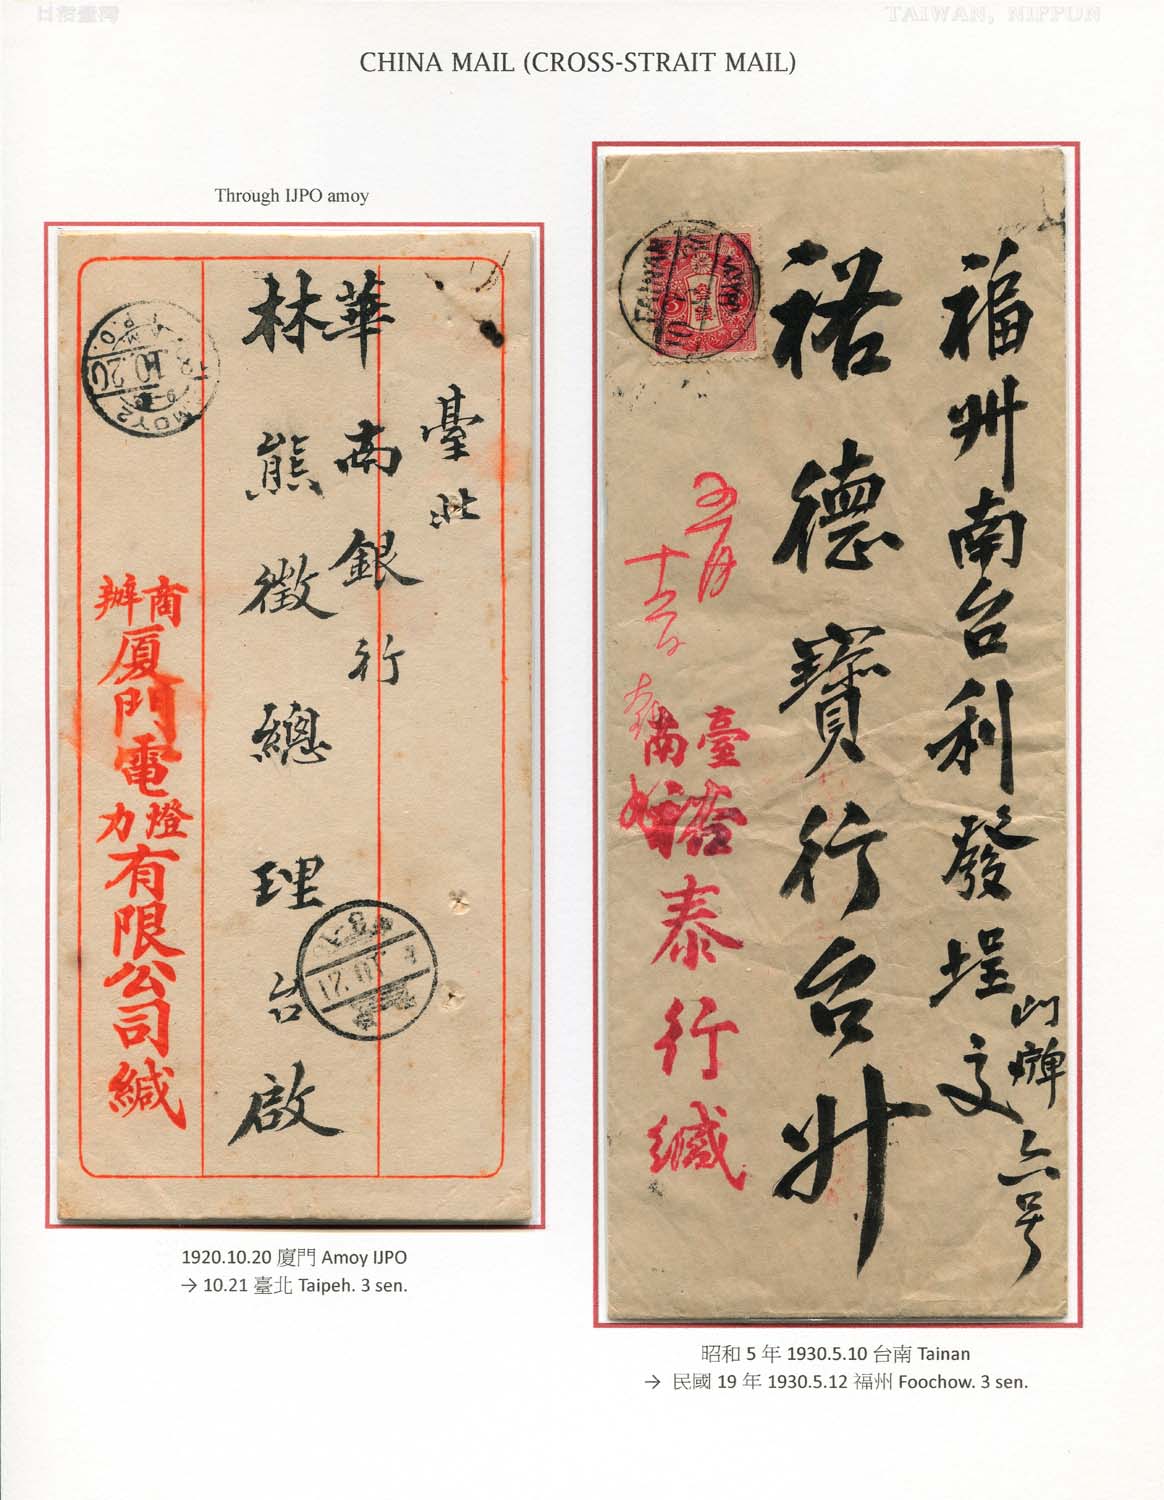 日治臺灣
TAIWAN, NIPPUN
CHINA MAIL (CROSS-STRAIT MAIL)
Through IJPO amoy
臺北
華南銀行
林熊徵總理台啟
商辦
厦門電
燈力
有限公司緘
AMOY
10.20
I.J.P.O.
1920.10.20 廈門 Amoy IJPO
→ 10.21 臺北 Taipeh. 3 sen.
福州南台利發埕
門牌六号
裕德寶行台升
五月
臺南
裕泰行緘
TAINAN
TAIWAN
昭和 5 年 1930.5.10 台南 Tainan
→ 民國 19 年 1930.5.12 福州 Foochow. 3 sen.